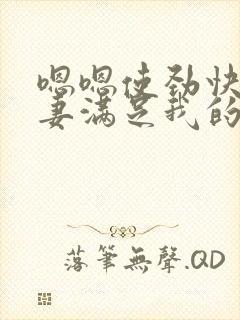 嗯嗯使劲快
妻满足我的
落筆無聲.QD